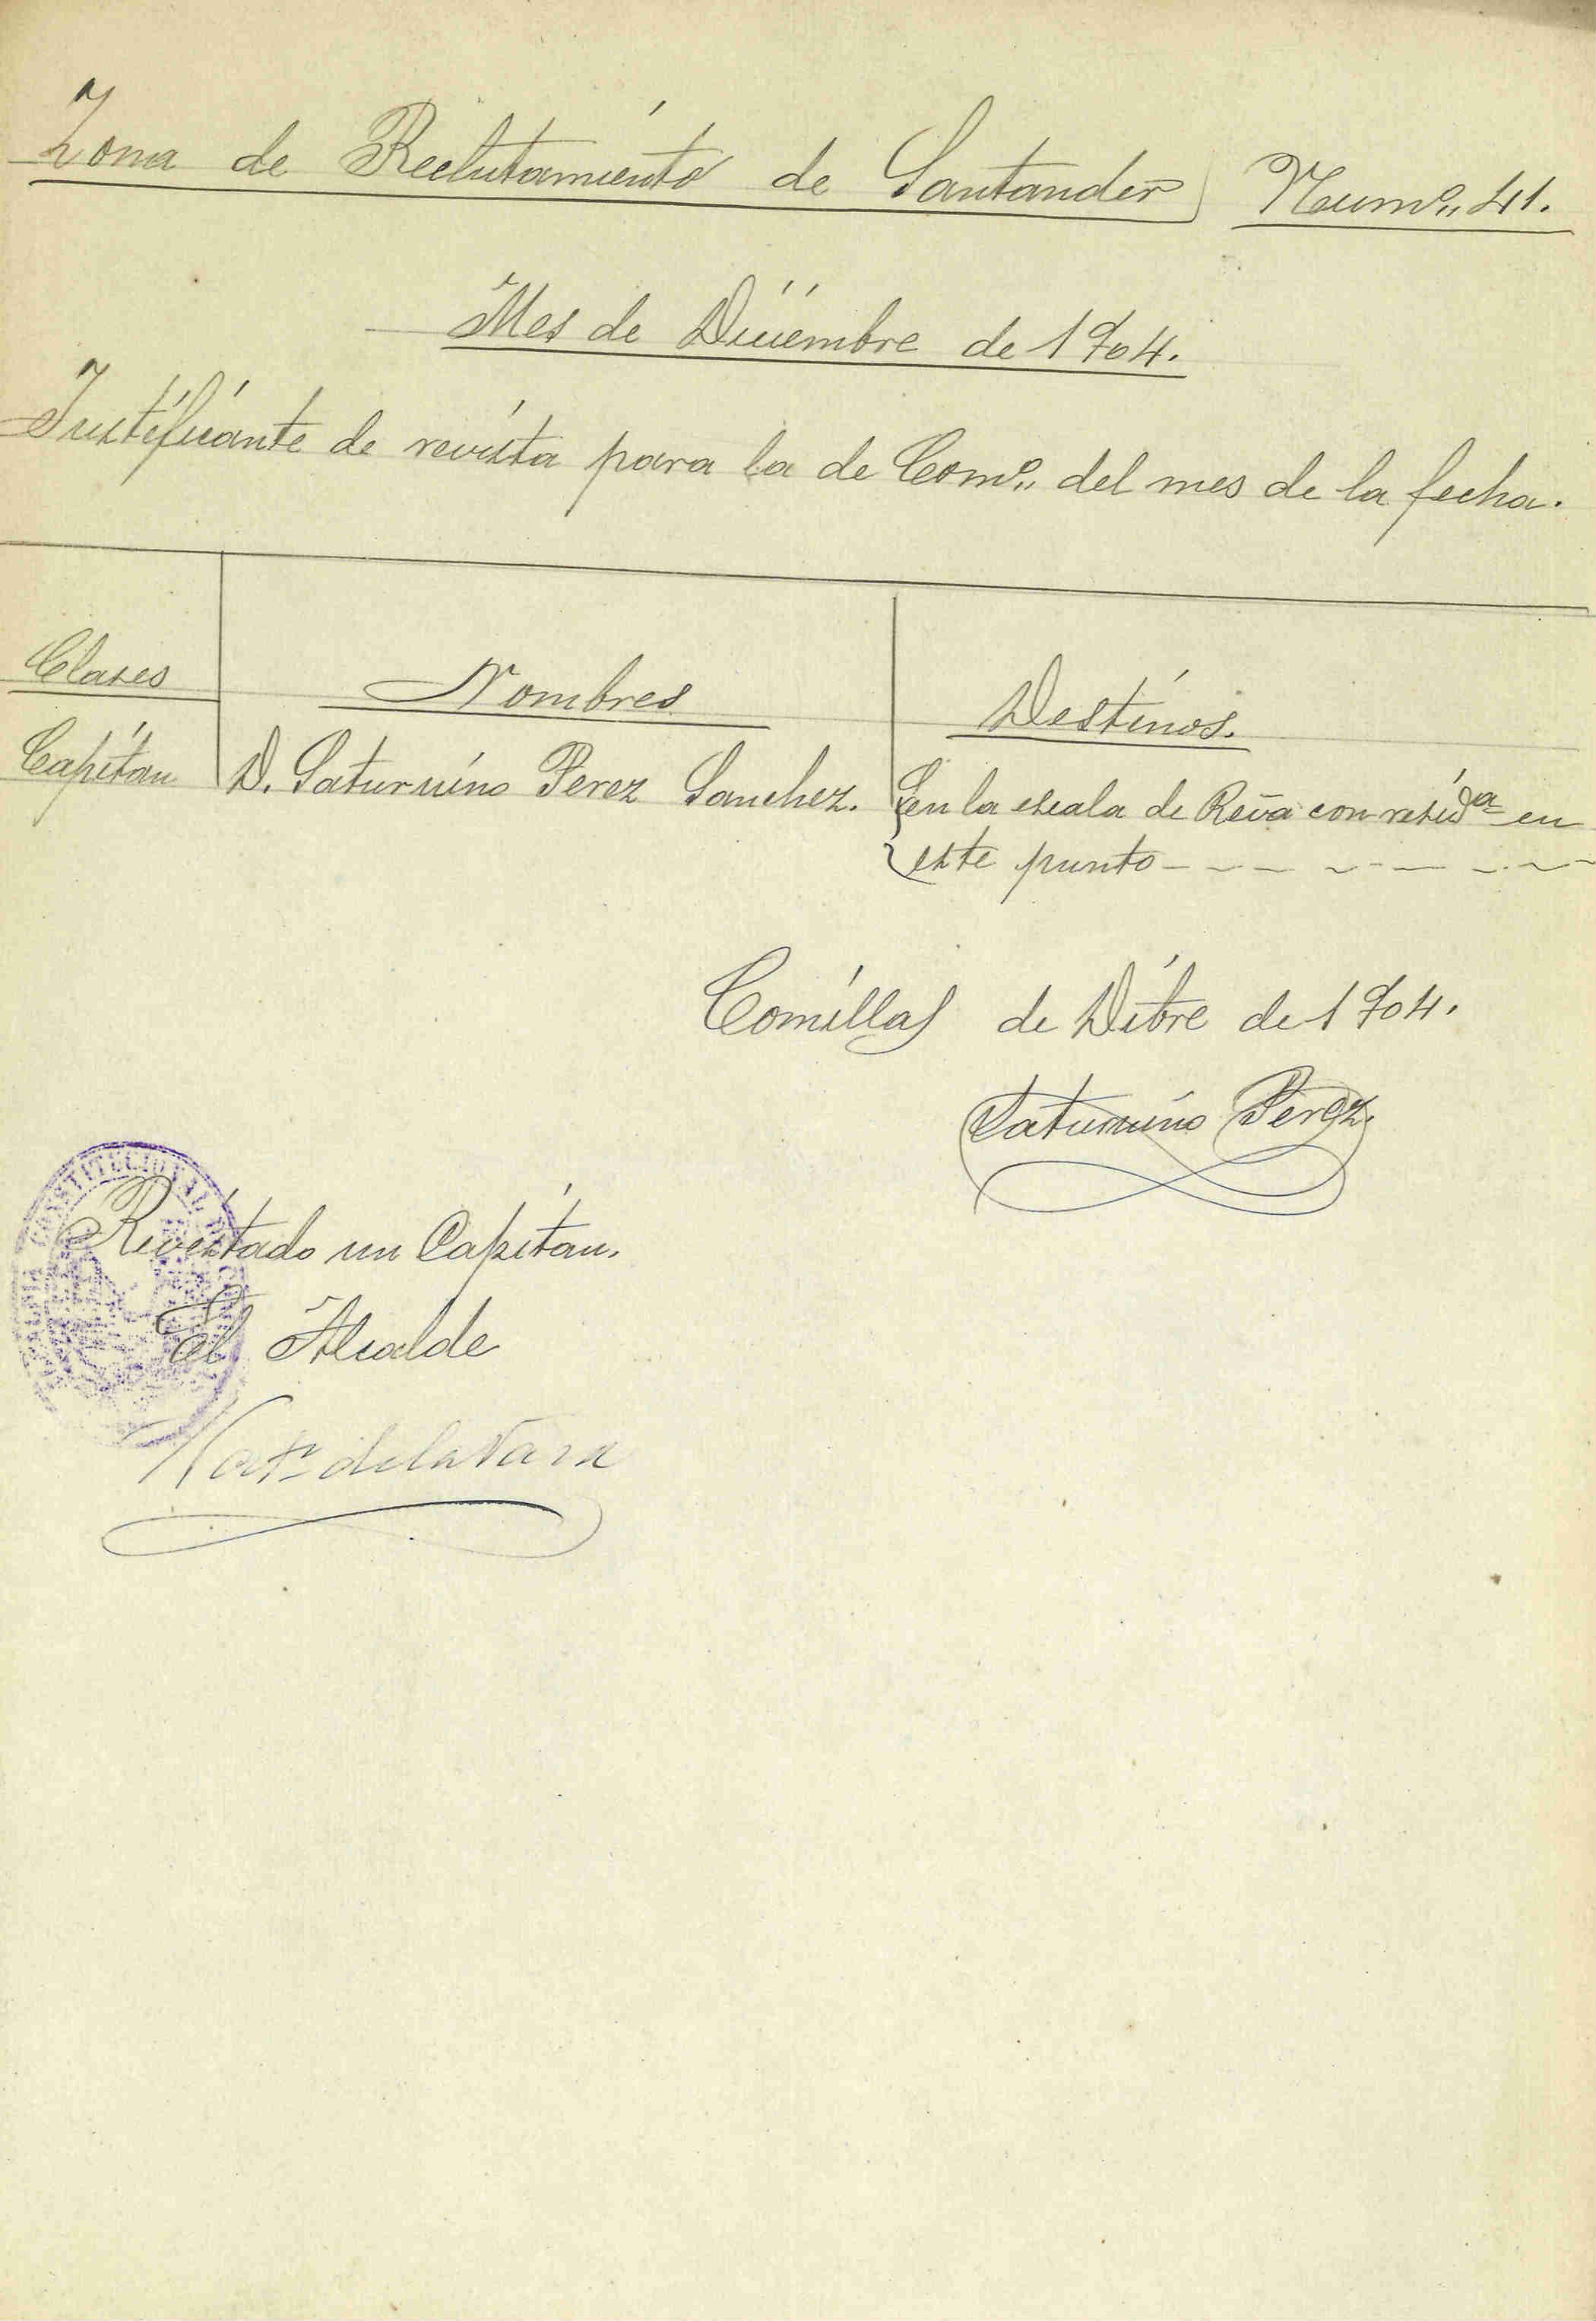 Zona de Reclutamiento de Santander Numº,, 41.
Mes de Diciembre de 1904.
Justificante de revista para la de Comº,, del mes de la fecha.
Clases Nombres Destinos.
Capitan D. Saturnino Perez Sanchez. en la escala de Rēva con residª en
este punto
Comillas de Dibre de 1904.
Saturnino Perez.
CONSTITUCIONAL
Revistado un Capitan.
El Alcalde
de la Vara